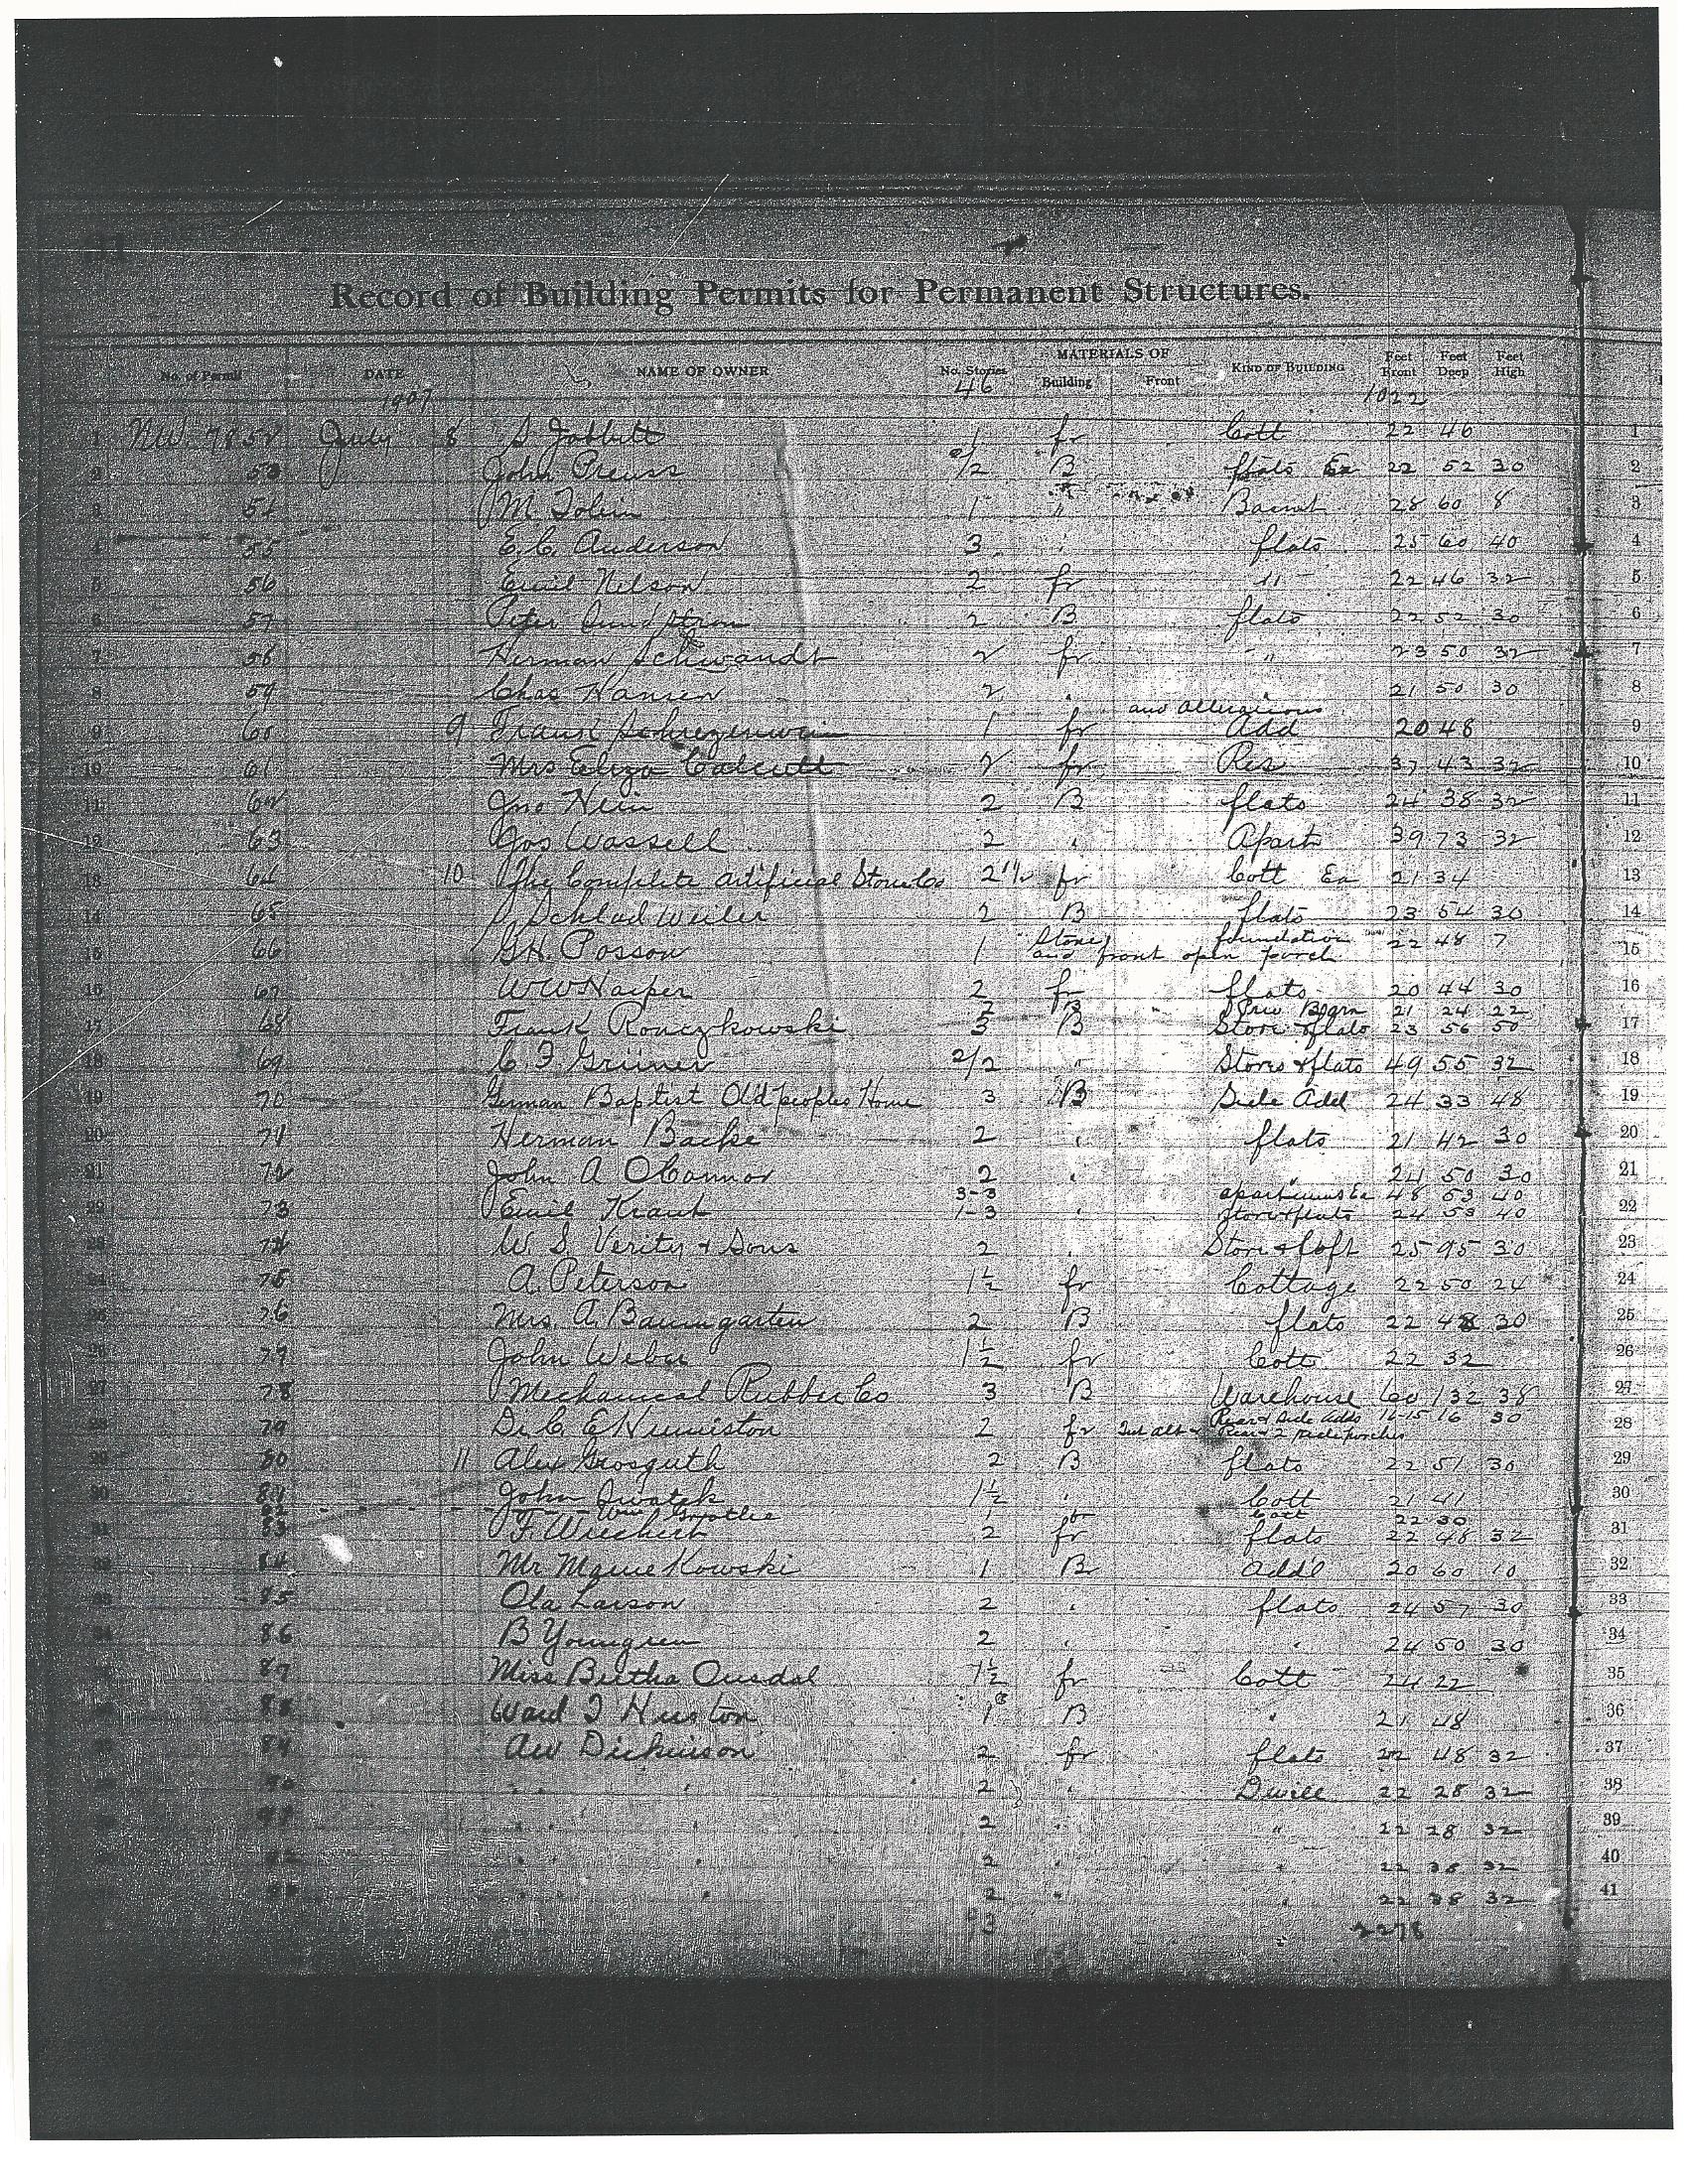 Record of Building Permits for Permanent Structures.
No. of Permit DATE NAME OF OWNER No. Stories MATERIALS OF Building Front KIND OF BUILDING Feet Front Feet Deep Feet High
1907 46 1022
1 N.W. 7852 July 8 S 1 fr Cott 22 46 1
2 53 John Preuss 2/2 B flats Ea 22 52 30 2
3 54 M. Tobin 1 " Basmt 28 60 8 3
4 55 E. C. Anderson 3 " flats 25 60 40 4
5 56 Emil Nelson 2 fr " 22 46 32 5
6 57 Peter 2 B flats 22 52 30 6
7 58 Herman Schwandt 2 fr " 23 50 32 7
8 59 Chas Hansen 2 " " 21 50 30 8
and alterations
9 60 9 Frank 1 fr Add 20 48 9
10 61 Mrs Eliza Calcutt 2 fr Res 37 43 32 10
11 62 Jno Hein 2 B flats 24 38 32 11
12 63 Jos Wassell 2 " Apart 39 73 32 12
13 64 10 The Complete Artificial Stone Co 2 1 1/2 fr Cott Ea 21 34 13
14 65 2 B flats 23 54 30 14
15 66 G.H. Posson 1 Stone foundation 22 48 7 15
and front open porch
16 67 W W Harper 2 fr flats 20 44 30 16
2 B Barn 21 24 22
17 68 Frank Ronczkowski 3 B Store & flats 23 56 50 17
18 69 C. F. Grüner 2/2 " Stores & flats 49 55 32 18
19 70 German Baptist Old peoples Home 3 B Side Add 24 33 48 19
20 71 Herman Backe 2 " flats 21 42 30 20
21 72 John A OConnor 2 " " 24 50 30 21
3-3 apartments Ea 48 53 40
22 73 Emil Kraut 1-3 " Store & flats 24 53 40 22
23 74 W. S. Verity & Sons 2 " Store & Loft 25 95 30 23
24 75 A. Peterson 1 1/2 fr Cottage 22 50 24 24
25 76 Mrs. A. Baumgarten 2 B flats 22 48 30 25
26 77 John Weber 1 1/2 fr Cott 22 32 26
27 78 Mechanical Rubber Co 3 B Warehouse 60 132 38 27
Rear & Side Adds 16-15 16 30
28 79 Dr. C. E. Humiston 2 fr Int alt & Rear & 2 side porches 28
29 80 11 Alex Grosguth 2 B flats 22 51 30 29
30 81 John Swatek 1 1/2 " Cott 21 41 30
82 Wm 1 fr Cott 22 30
31 83 F. Wiechert 2 fr flats 22 48 32 31
32 84 Mr 1 Br Add'l 20 60 10 32
33 85 Ola Larson 2 " flats 24 57 30 33
34 86 B Youngren 2 " " 24 50 30 34
87 Miss Bertha Ousdal 1 1/2 fr Cott 24 22 35
88 Ward T Huston 1 B " 21 48 36
89 AW Dickinson 2 fr flats 22 48 32 37
90 " " " 2 " Dwell 22 28 32 38
91 " " " 2 " " 22 28 32 39
92 " " " 2 " " 22 38 32 40
93 " " " 2 " " 22 38 32 41
3 2278